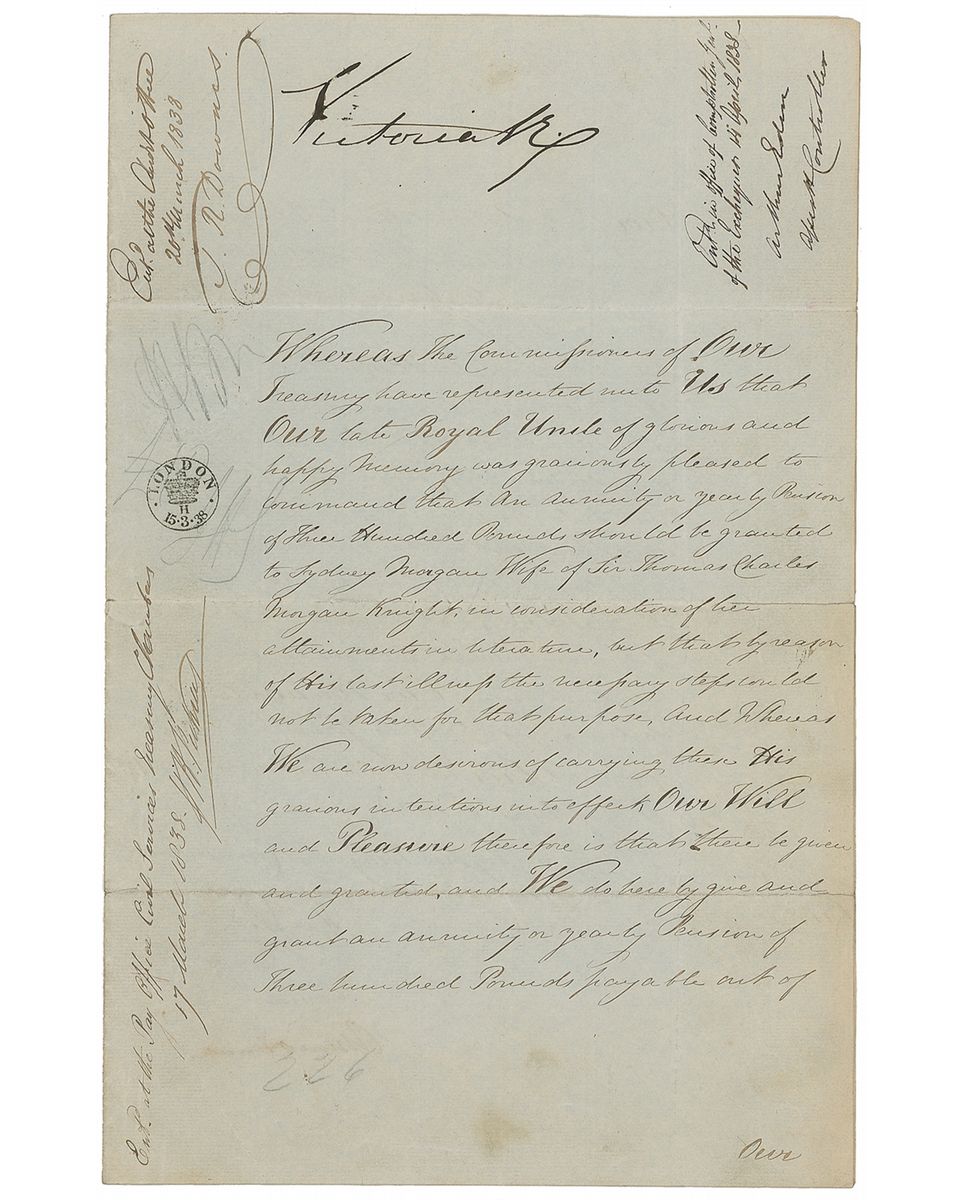 Victoria R.
Ent.d at the Audit Office
20th March 1838
J. R. Downes.
Ent.d in office of Comptroller Gen.l
of the Exchequer 14 April, 1838
Arthur Eden
Assist Controller
Whereas The Commissioners of Our
Treasury have represented unto Us that
Our late Royal Uncle of glorious and
happy Memory was graciously pleased to
command that An annuity or yearly Pension
of Three Hundred Pounds should be granted
to Sydney Morgan Wife of Sir Thomas Charles
Morgan Knight, in consideration of her
attainments in literature, but that by reason
of His last illness the necessary steps could
not be taken for that purpose, And Whereas
We are now desirous of carrying these His
gracious intentions into effect, Our Will
and Pleasure therefore is that there be given
and granted, and We do hereby give and
grant an annuity or yearly Pension of
Three hundred Pounds payable out of
Our
LONDON
H
15·3·38
Ent.d at the Pay Office Civil Services Treasury Chambers
17 March 1838.
226